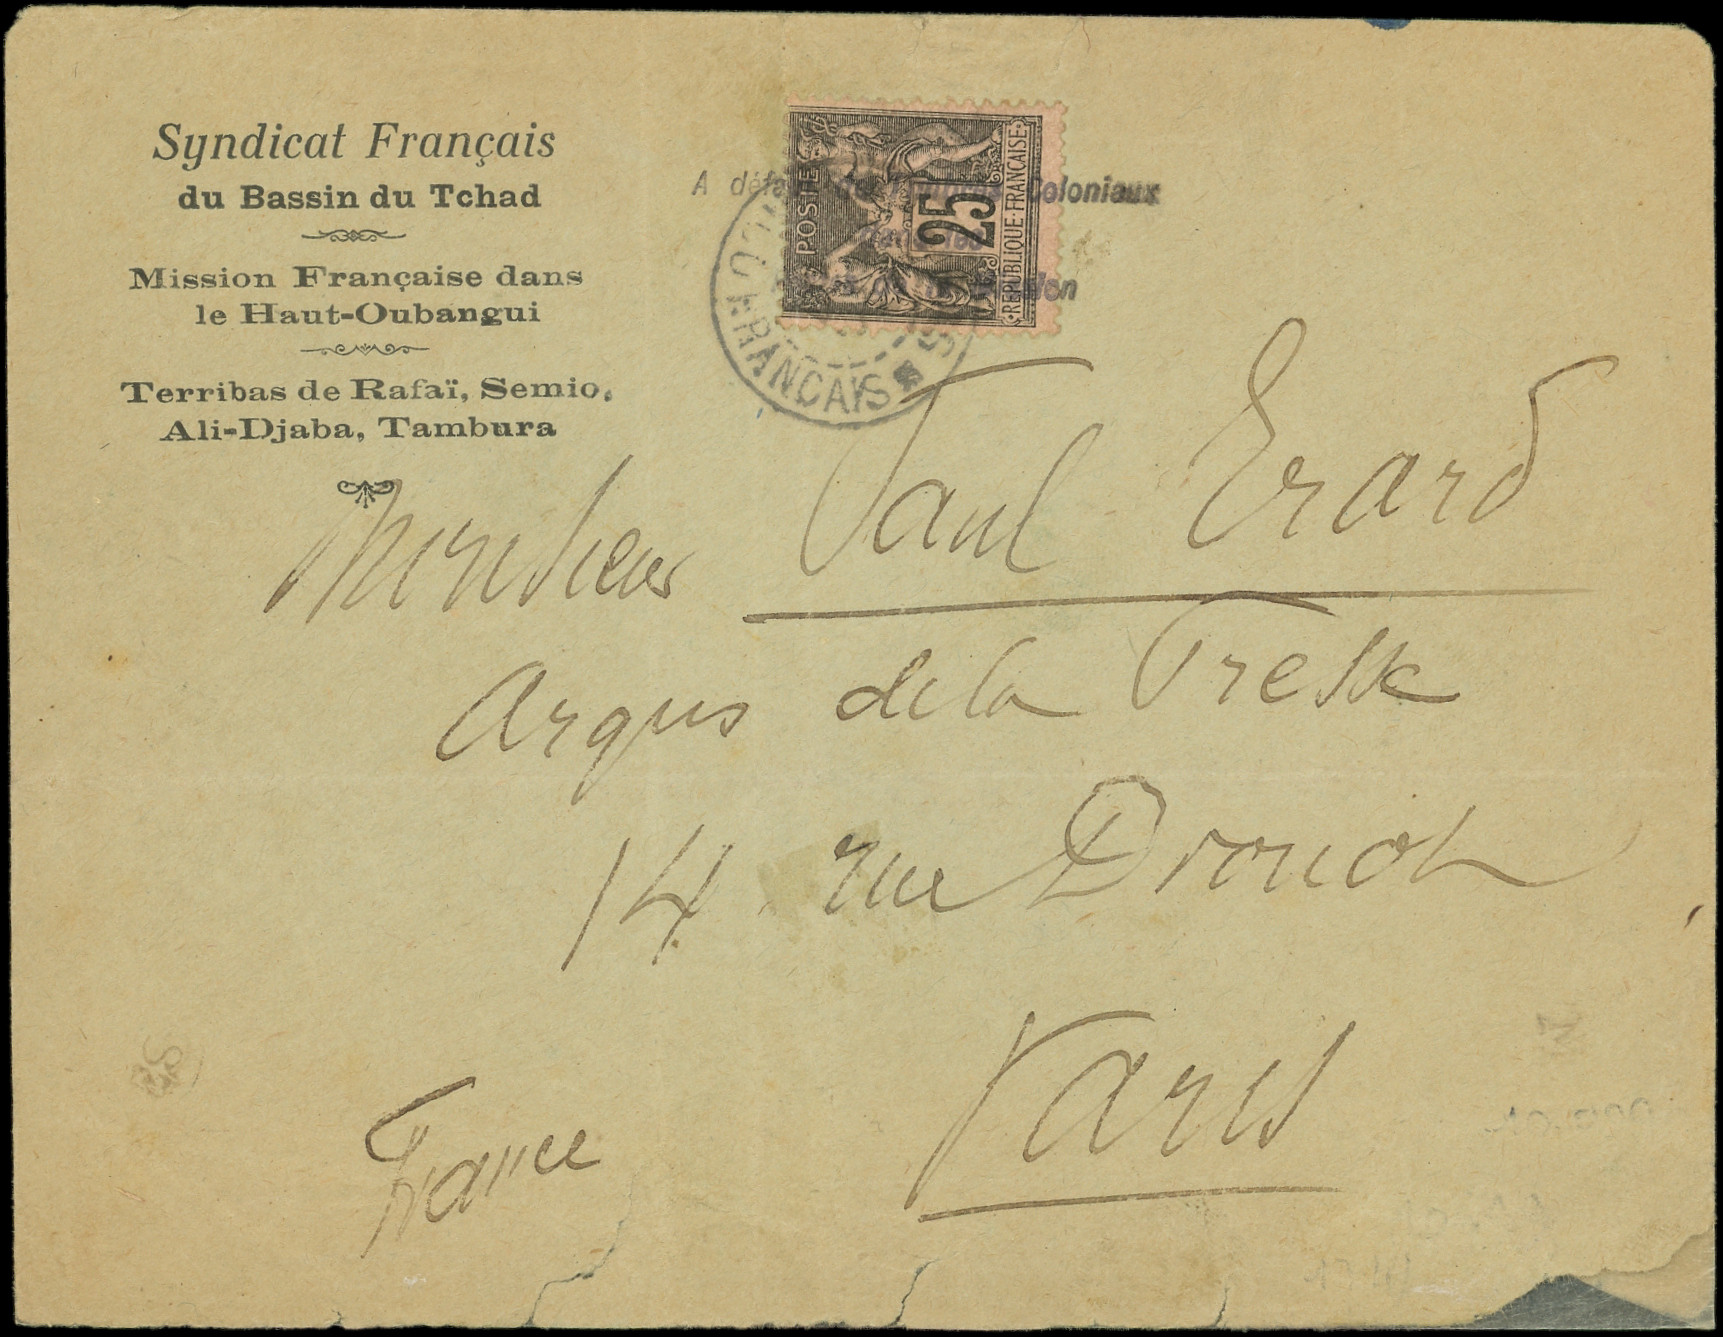 Syndicat Français
du Bassin du Tchad
Mission Française dans
le Haut-Oubangui
Terribas de Rafaï, Semio,
Ali-Djaba, Tambura
A défaut Coloniaux
POSTES
25
REPUBLIQUE FRANÇAISE
FRANÇAIS
Monsieur Paul Erard
Argus de la Presse
14 rue Drouot
Paris
France